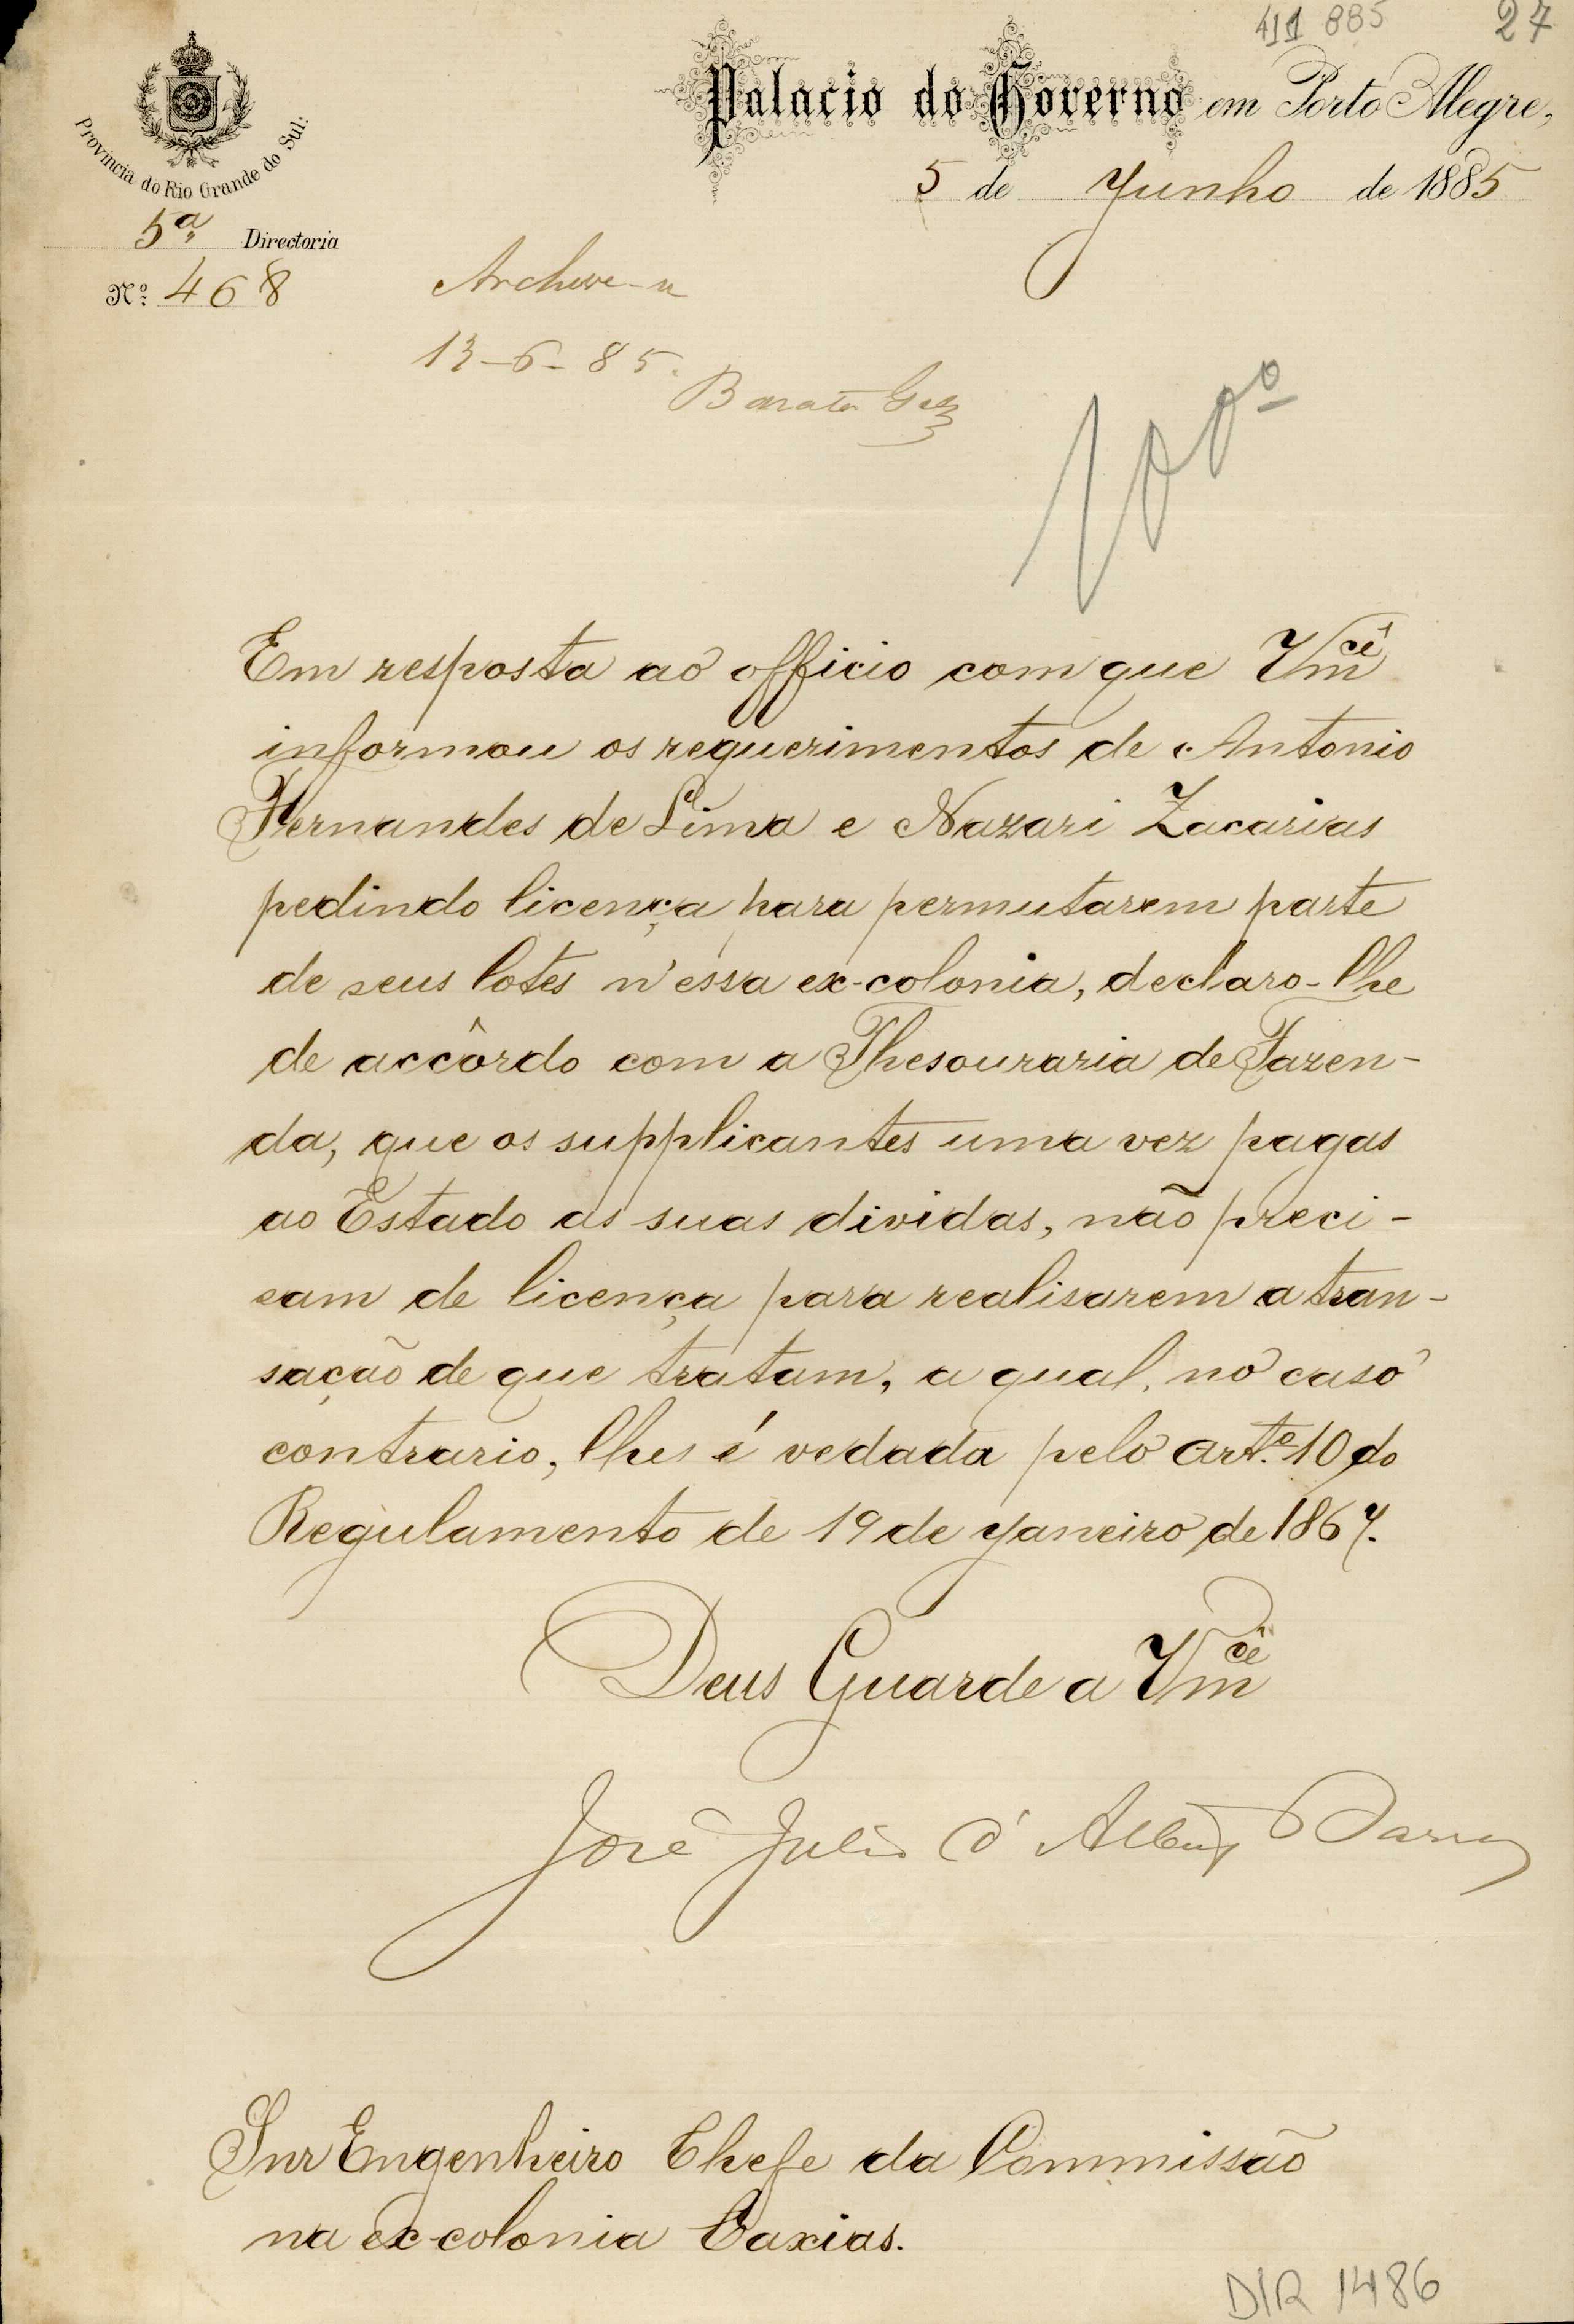 411 885 27
Palacio do Governo em Porto Alegre,
5 de Junho de 1885
Provincia do Rio Grande do Sul:
5ª Directoria
Nº 468
Archive-se
13-6-85.
Barata Góes
100º
Em resposta ao officio com que Vmcê
informou os requerimentos de Antonio
Fernandes de Lima e Nazari Zacarias
pedindo licença para permutarem parte
de seus lotes n'essa ex-colonia, declaro-lhe
de accôrdo com a Thesouraria de Fazen-
da, que os supplicantes uma vez pagas
ao Estado as suas dividas, não preci-
sam de licença para realisarem a tran-
sação de que tratam, a qual, no caso
contrario, lhes é vedada pelo artº. 10 do
Regulamento de 19 de Janeiro de 1867.
Deus Guarde a Vmcê
José Julio d'Albuqe Barros
Snr Engenheiro Chefe da Commissão
na ex-colonia Caxias.
DIR 1486